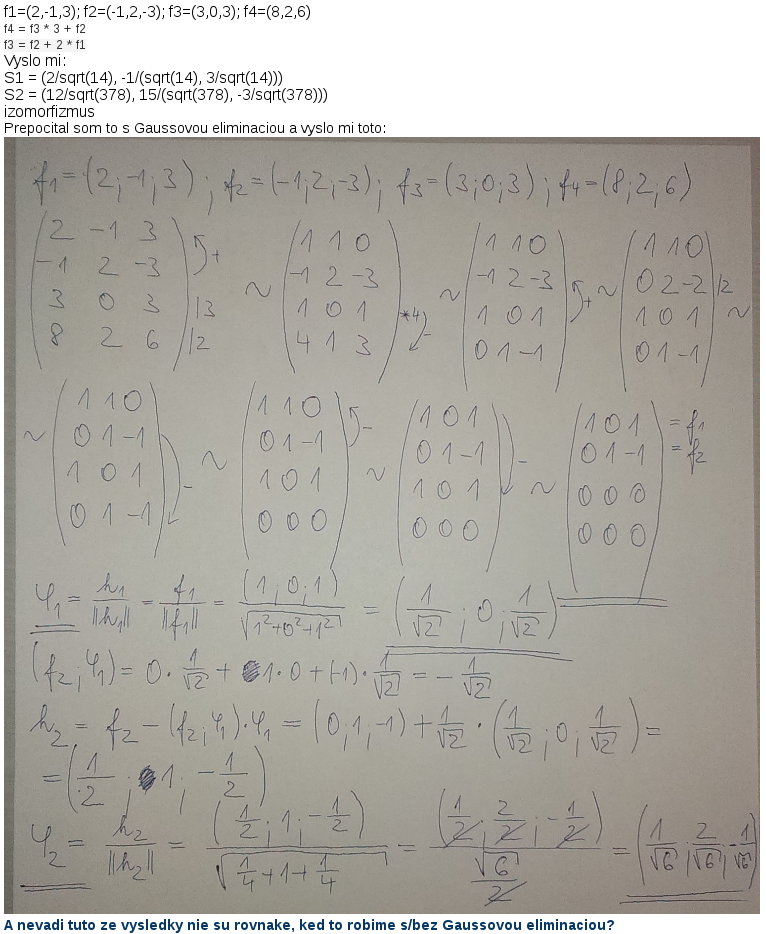 f1=(2,-1,3); f2=(-1,2,-3); f3=(3,0,3); f4=(8,2,6)
f4 = f3 * 3 + f2
f3 = f2 + 2 * f1
Vyslo mi:
S1 = (2/sqrt(14), -1/(sqrt(14), 3/sqrt(14)))
S2 = (12/sqrt(378), 15/(sqrt(378), -3/sqrt(378)))
izomorfizmus
Prepocital som to s Gaussovou eliminaciou a vyslo mi toto:
f1=(2;-1;3) ; f2=(-1;2;-3) ; f3=(3;0;3) ; f4=(8;2;6)
(2 -1 3) + ~ (1 1 0) ~ (1 1 0) ~ (1 1 0)
(-1 2 -3) (-1 2 -3) (-1 2 -3) (0 2 -2) /2
(3 0 3) /3 (1 0 1) *4 (1 0 1) + (1 0 1) ~
(8 2 6) /2 (4 1 3) - (0 1 -1) (0 1 -1)
~ (1 1 0) ~ (1 1 0) - ~ (1 0 1) ~ (1 0 1) = f1
(0 1 -1) (0 1 -1) (0 1 -1) - (0 1 -1) = f2
(1 0 1) - (1 0 1) (1 0 1) (0 0 0)
(0 1 -1) (0 0 0) (0 0 0) (0 0 0)
φ1 = h1/||h1|| = f1/||f1|| = (1;0;1)/√(1²+0²+1²) = (1/√2 ; 0 ; 1/√2)
(f2;φ1) = 0·1/√2 + 1·0 + (-1)·1/√2 = -1/√2
h2 = f2 - (f2;φ1)·φ1 = (0;1;-1) + 1/√2 · (1/√2 ; 0 ; 1/√2) =
= (1/2 ; 1 ; -1/2)
φ2 = h2/||h2|| = (1/2 ; 1 ; -1/2)/√(1/4+1+1/4) = (1/2 ; 2/2 ; -1/2)/(√6/2) = (1/√6 ; 2/√6 ; -1/√6)
A nevadi tuto ze vysledky nie su rovnake, ked to robime s/bez Gaussovou eliminaciou?